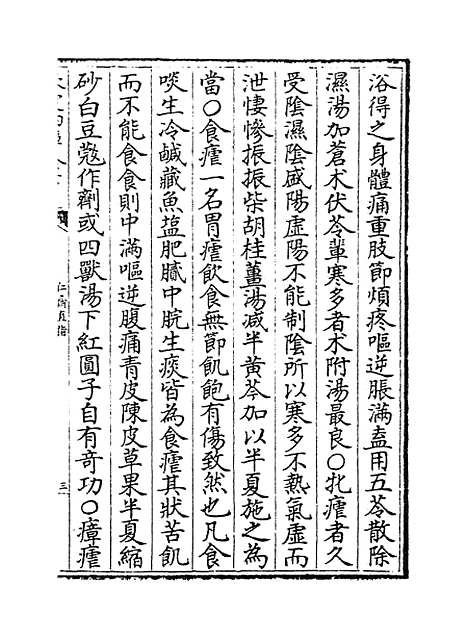 浴得之身體痛重肢節煩疼嘔逆脹滿盍用五苓散除
濕湯加蒼术伏苓輩寒多者术附湯最良○牝瘧者久
受陰濕陰盛陽虛陽不能制陰所以寒多不熱氣虛而
泄悽慘振振柴胡桂薑湯减半黄芩加以半夏施之為
當○食瘧一名胃瘧飲食無節飢飽有傷致然也凡食
啖生冷鹹藏魚塩肥膩中脘生痰皆為食瘧其狀苦飢
而不能食食則中滿嘔逆腹痛青皮陳皮草果半夏縮
砂白豆蔻作劑或四獸湯下紅圓子自有奇功○瘴瘧
仁齋直指
三